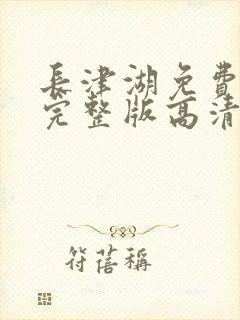 長津湖免費
完整版高清
符蓓稱